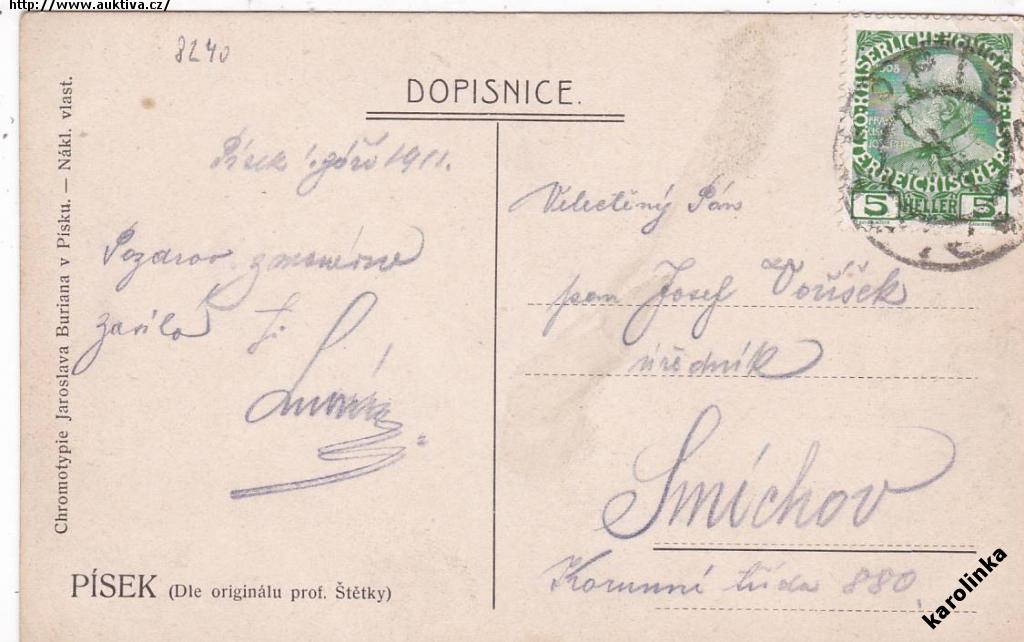 http://www.auktiva.cz/
8240
DOPISNICE.
Písek září 1911.
Pozdrav
Velectěný Pán
pan Josef Voříšek
úředník
Smíchov
Korunní třída 880
KAISERLICHE KÖNIGLICHE
ÖSTERREICHISCHE POST
1908
5 HELLER 5
Chromotypie Jaroslava Buriana v Písku. — Nákl. vlast.
PÍSEK (Dle originálu prof. Štětky)
karolinka